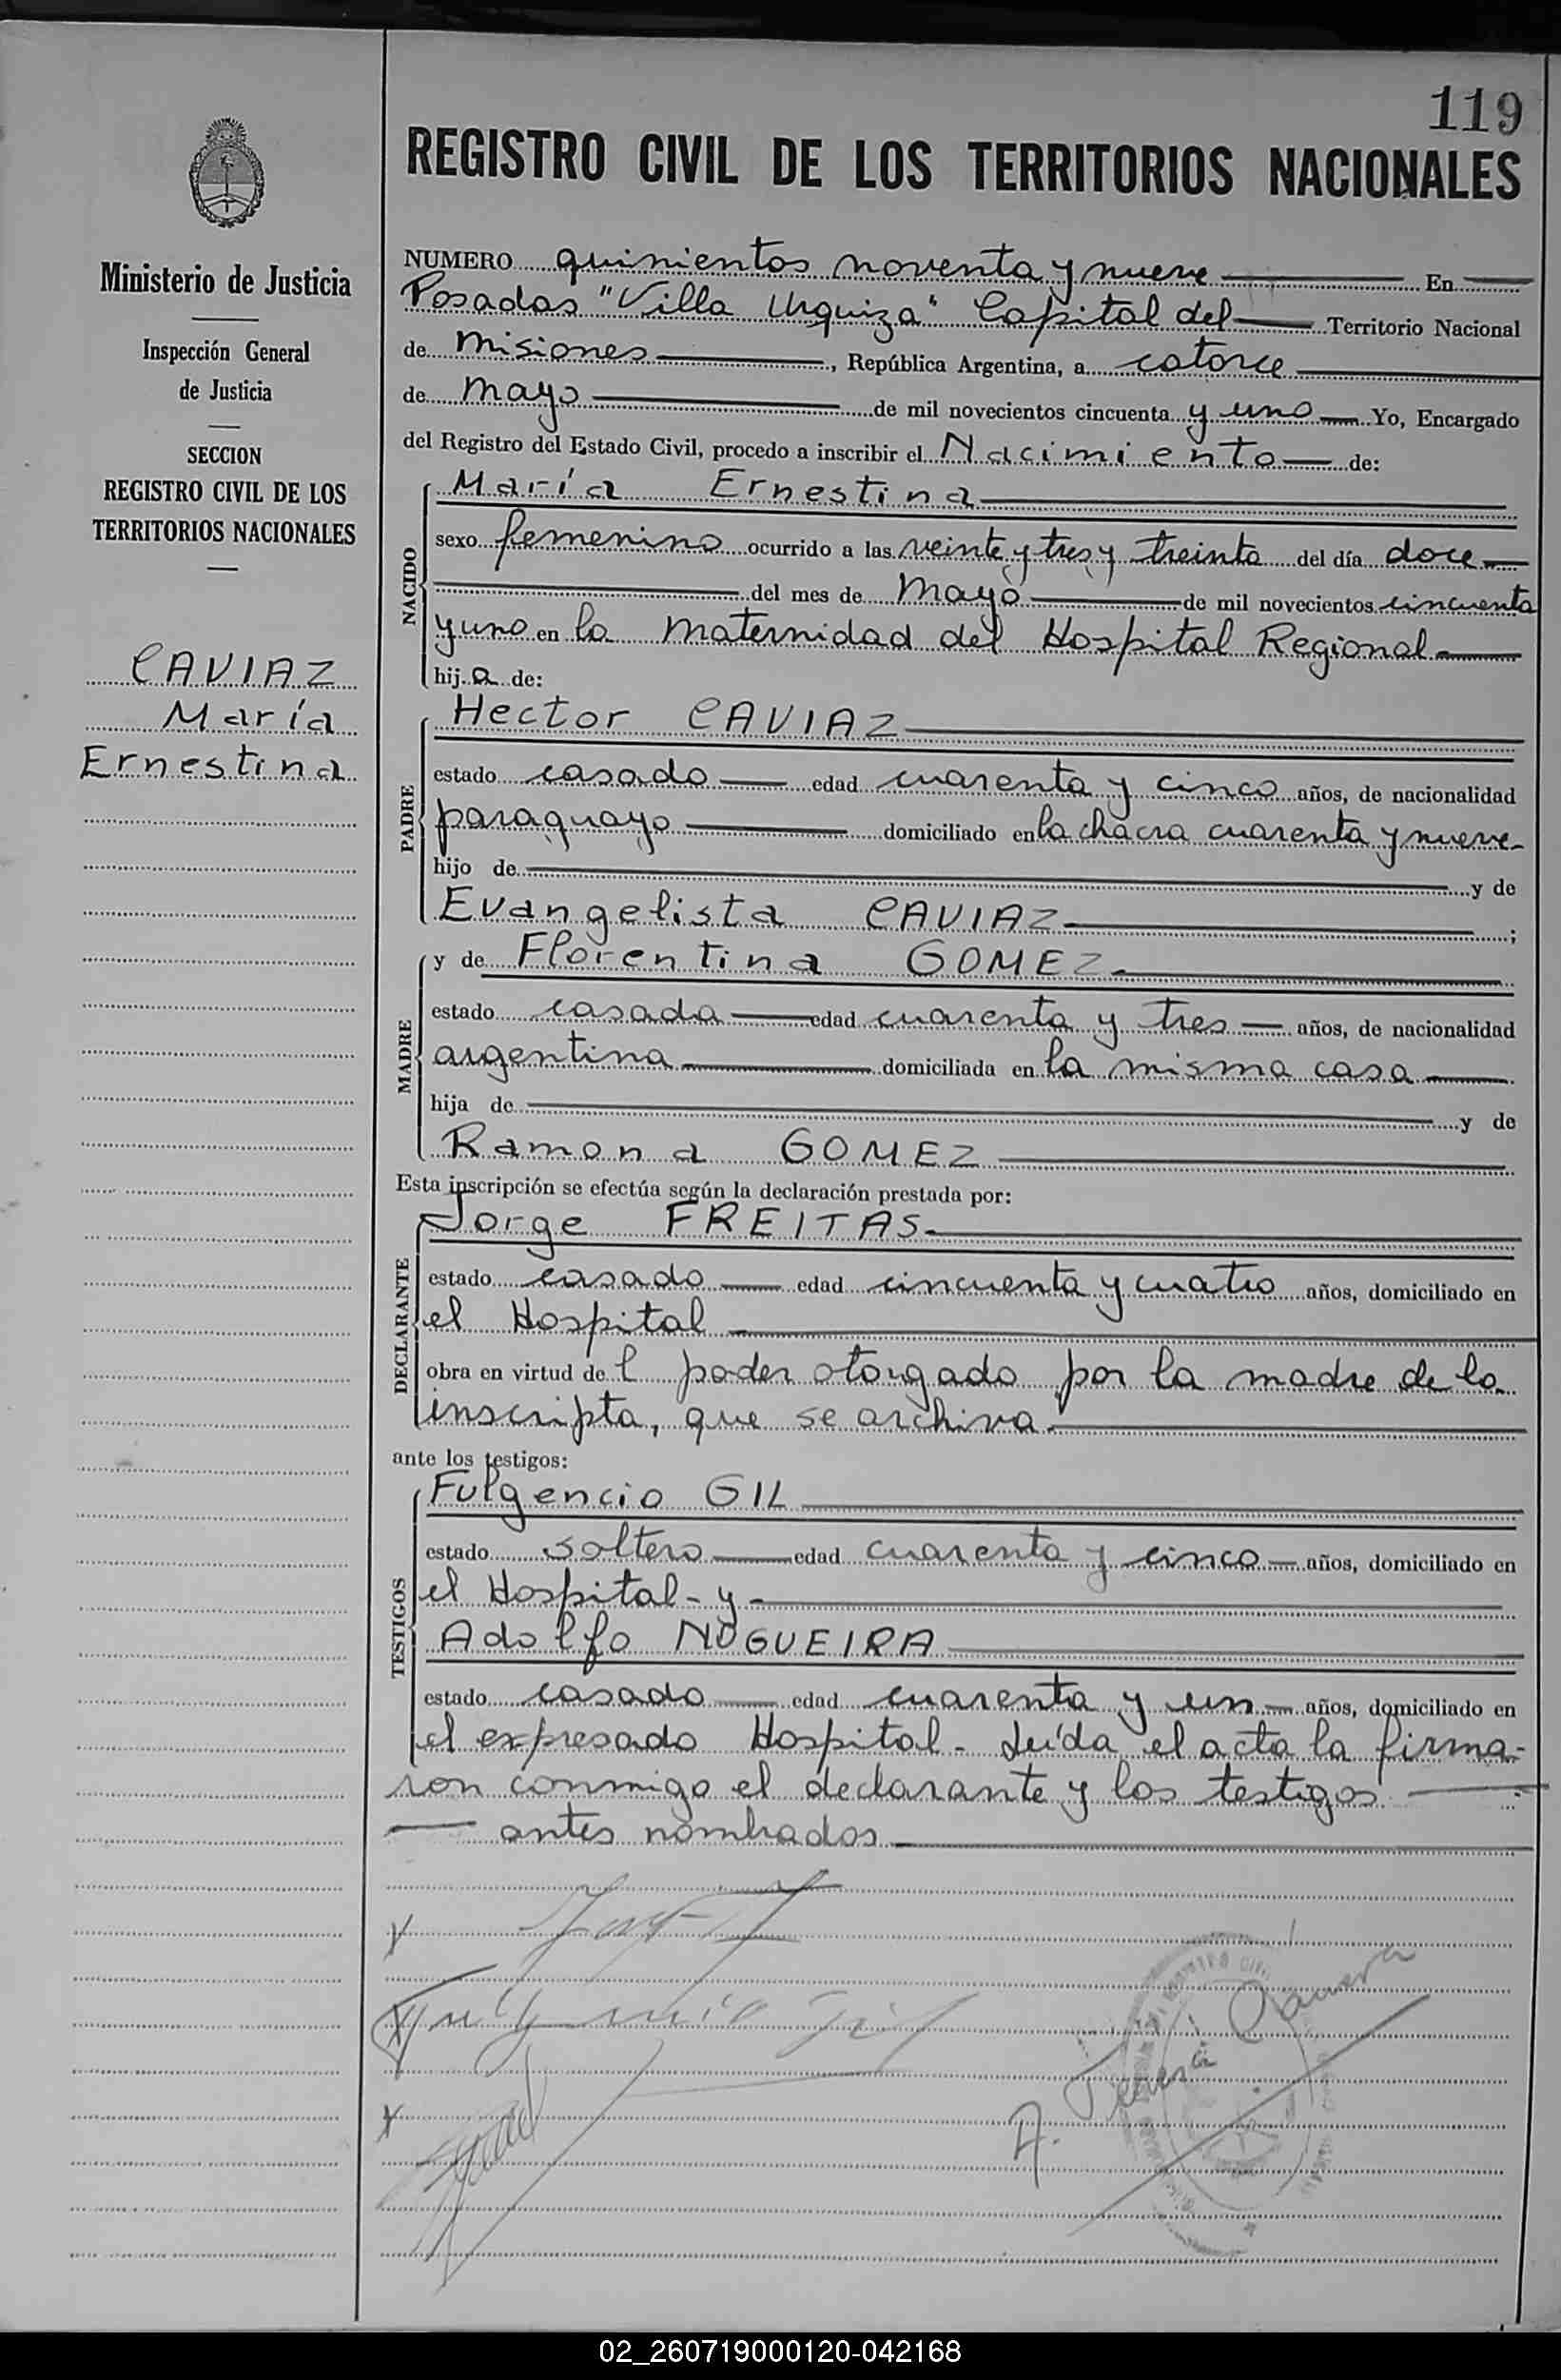 119
REGISTRO CIVIL DE LOS TERRITORIOS NACIONALES
Ministerio de Justicia
Inspección General
de Justicia
SECCION
REGISTRO CIVIL DE LOS
TERRITORIOS NACIONALES
CAVIAZ
María
Ernestina
NUMERO quinientos noventa y nueve En
Posadas "Villa Urquiza" Capital del Territorio Nacional
de Misiones, República Argentina, a catorce
de mayo de mil novecientos cincuenta y uno Yo, Encargado
del Registro del Estado Civil, procedo a inscribir el Nacimiento de:
NACIDO
María Ernestina
sexo femenino ocurrido a las veinte y tres y treinta del día doce
del mes de Mayo de mil novecientos cincuenta
y uno en la Maternidad del Hospital Regional
hija de:
PADRE
Hector CAVIAZ
estado casado edad cuarenta y cinco años, de nacionalidad
paraguayo domiciliado en la chacra cuarenta y nueve
hijo de y de
Evangelista CAVIAZ ;
MADRE
y de Florentina GOMEZ
estado casada edad cuarenta y tres años, de nacionalidad
argentina domiciliada en la misma casa
hija de y de
Ramona GOMEZ
Esta inscripción se efectúa según la declaración prestada por:
DECLARANTE
Jorge FREITAS
estado casado edad cincuenta y cuatro años, domiciliado en
el Hospital
obra en virtud del poder otorgado por la madre de la
inscripta, que se archiva
ante los testigos:
TESTIGOS
Fulgencio GIL
estado soltero edad cuarenta y cinco años, domiciliado en
el Hospital - y
Adolfo NOGUEIRA
estado casado edad cuarenta y un años, domiciliado en
el expresado Hospital - Leída el acta la firma-
ron conmigo el declarante y los testigos
antes nombrados
Fulgencio Gil
02_260719000120-042168